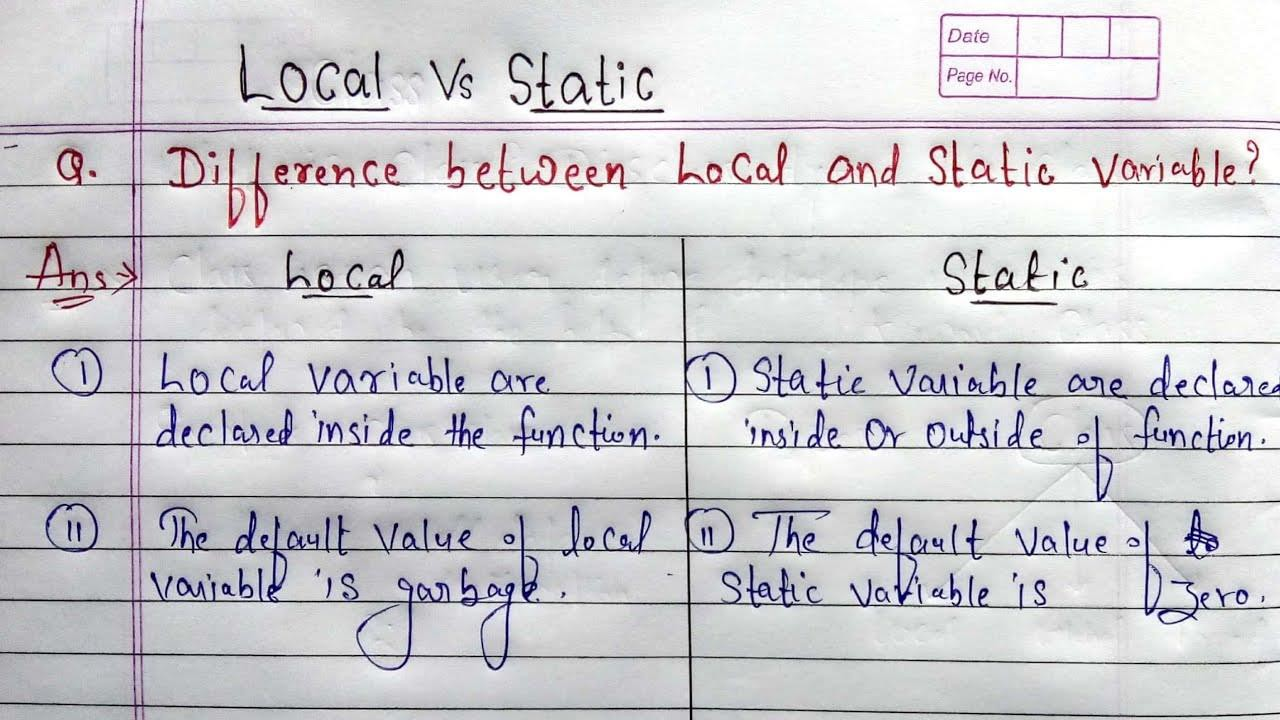 Date
Page No.
Local Vs Static
Q. Difference between Local and Static Variable?
Ans:> Local
Static
(I) Local variable are
declared inside the function.
(I) Static Variable are declared
inside or outside of function.
(II) The default Value of local
variable is garbage.
(II) The default Value of
Static variable is Zero.